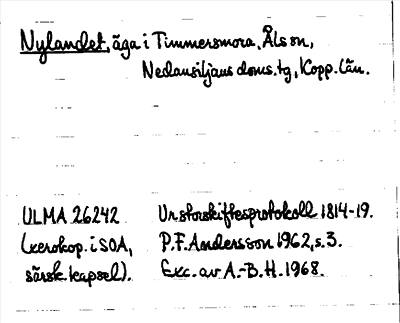 Nylandet, äga i Timmersmora, Åls sn,
Nedansiljans doms.tg, Kopp. län.
ULMA 26242 Ur storskiftesprotokoll 1814-19.
(xerokop. i SOA, P.F. Andersson 1962, s. 3.
särsk. kapsel). Exc. av A.-B. H. 1968.